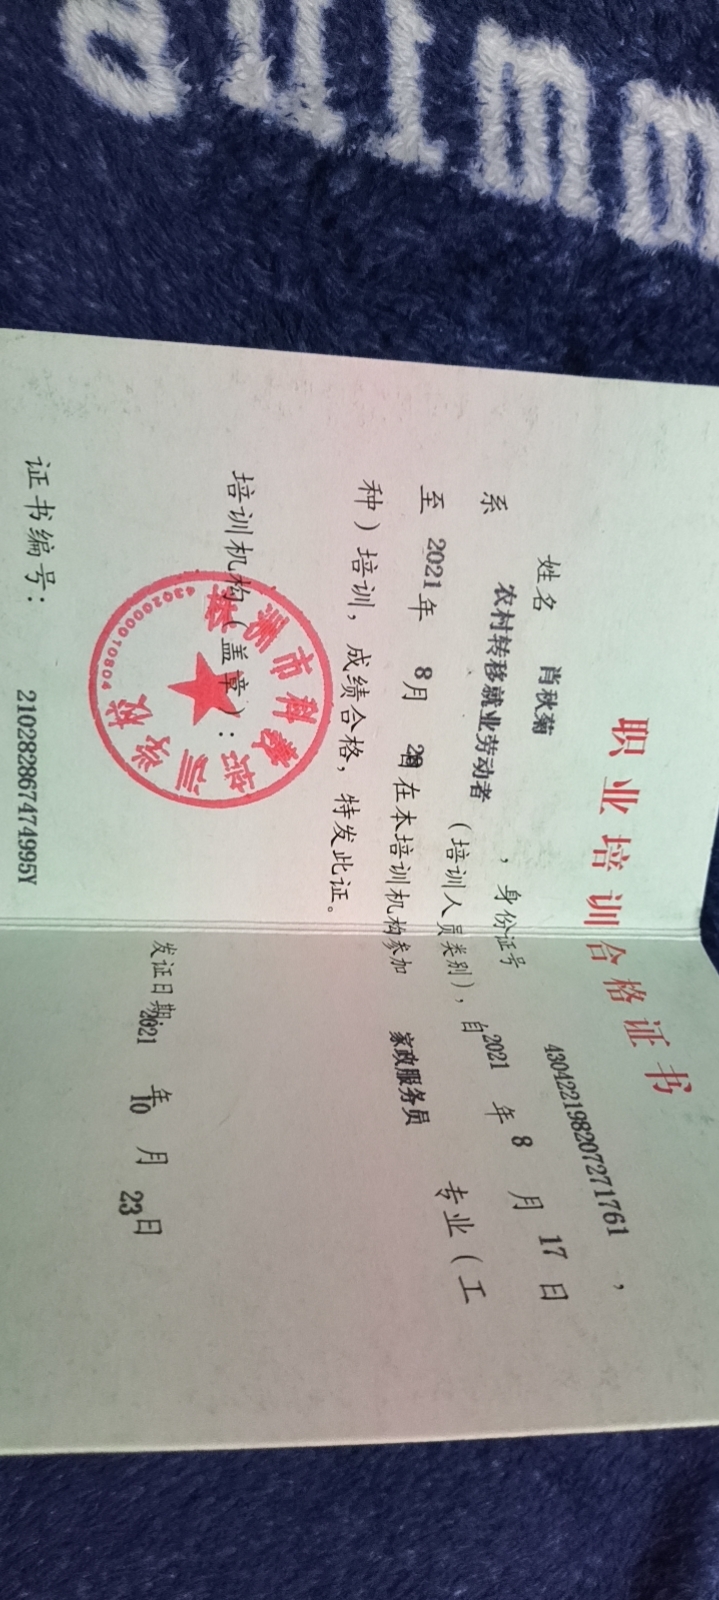 职业培训合格证书
姓名 肖秋菊 ，身份证号 430422198207271761 ，
系 农村转移就业劳动者 （培训人员类别），自2021 年 8 月 17 日
至 2021年 8月 日在本培训机构参加 家政服务员 专业（工
种）培训，成绩合格，特发此证。
培训机构（盖章）：
洲市科 培训学校
4302000010804
发证日期：2021 年 10 月 23日
证书编号： 210282867474995Y